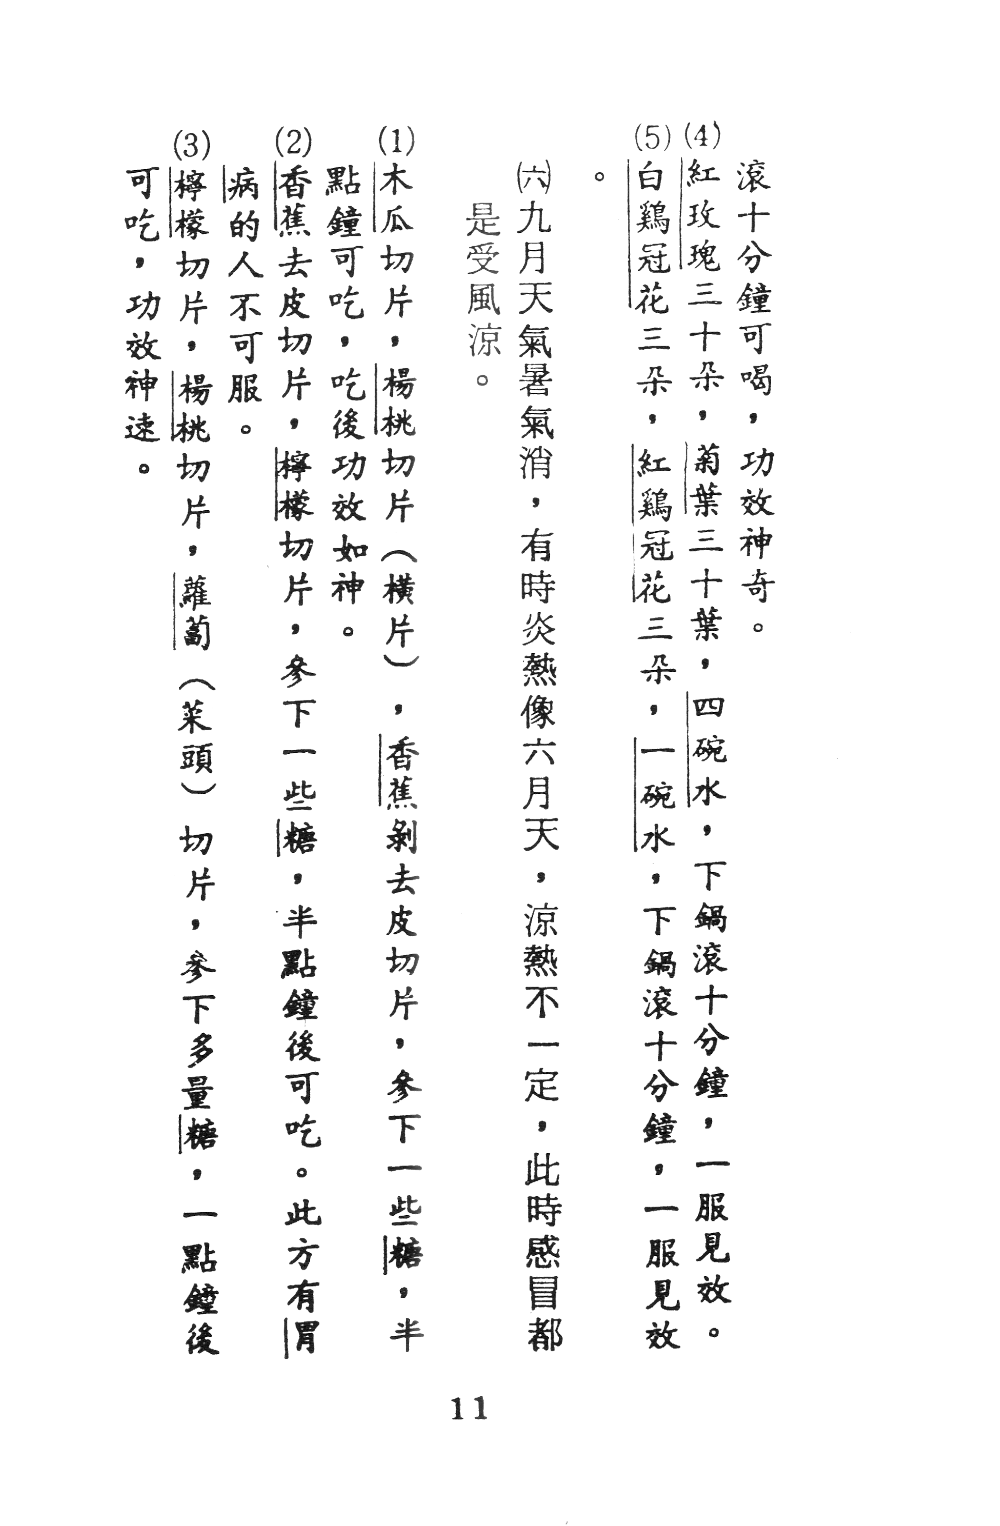 滾十分鐘可喝，功效神奇。
(4)紅玫瑰三十朵，菊葉三十葉，四碗水，下鍋滾十分鐘，一服見效。
(5)白鷄冠花三朵，紅鷄冠花三朵，一碗水，下鍋滾十分鐘，一服見效
。
㈥九月天氣暑氣消，有時炎熱像六月天，涼熱不一定，此時感冒都
是受風涼。
(1)木瓜切片，楊桃切片（橫片），香蕉剝去皮切片，參下一些糖，半
點鐘可吃，吃後功效如神。
(2)香蕉去皮切片，檸檬切片，參下一些糖，半點鐘後可吃。此方有胃
病的人不可服。
(3)檸檬切片，楊桃切片，蘿蔔（菜頭）切片，參下多量糖，一點鐘後
可吃，功效神速。
11